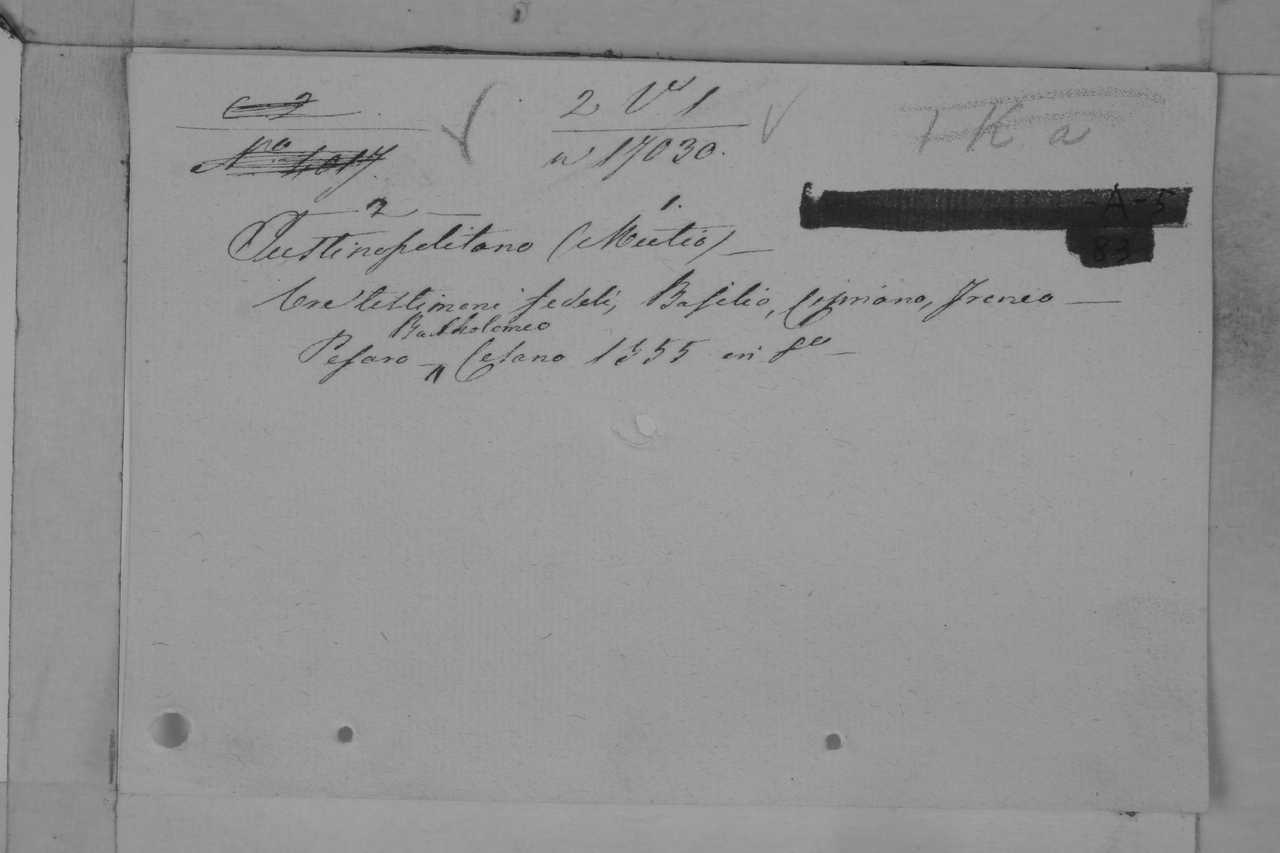 C 2
2 Vˡ 1
1 K a
Nro 4017.
n 17030.
A-5
83
2 1.
Justinopolitano (Mutio)
Tre testimoni fedeli, Basilio, Cipriano, Ireneo
Bartholomeo
Pesaro Cesano 1555 en 8º